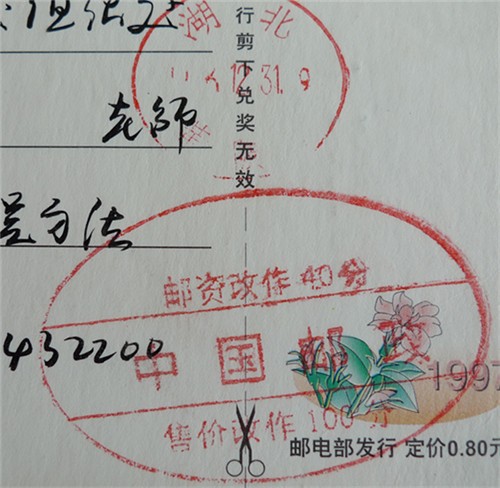 湖北
12.31.9
行剪下兑奖无效
老师
方法
邮资改作40分
432200
中国邮政
1997
售价改作100分
邮电部发行 定价0.80元